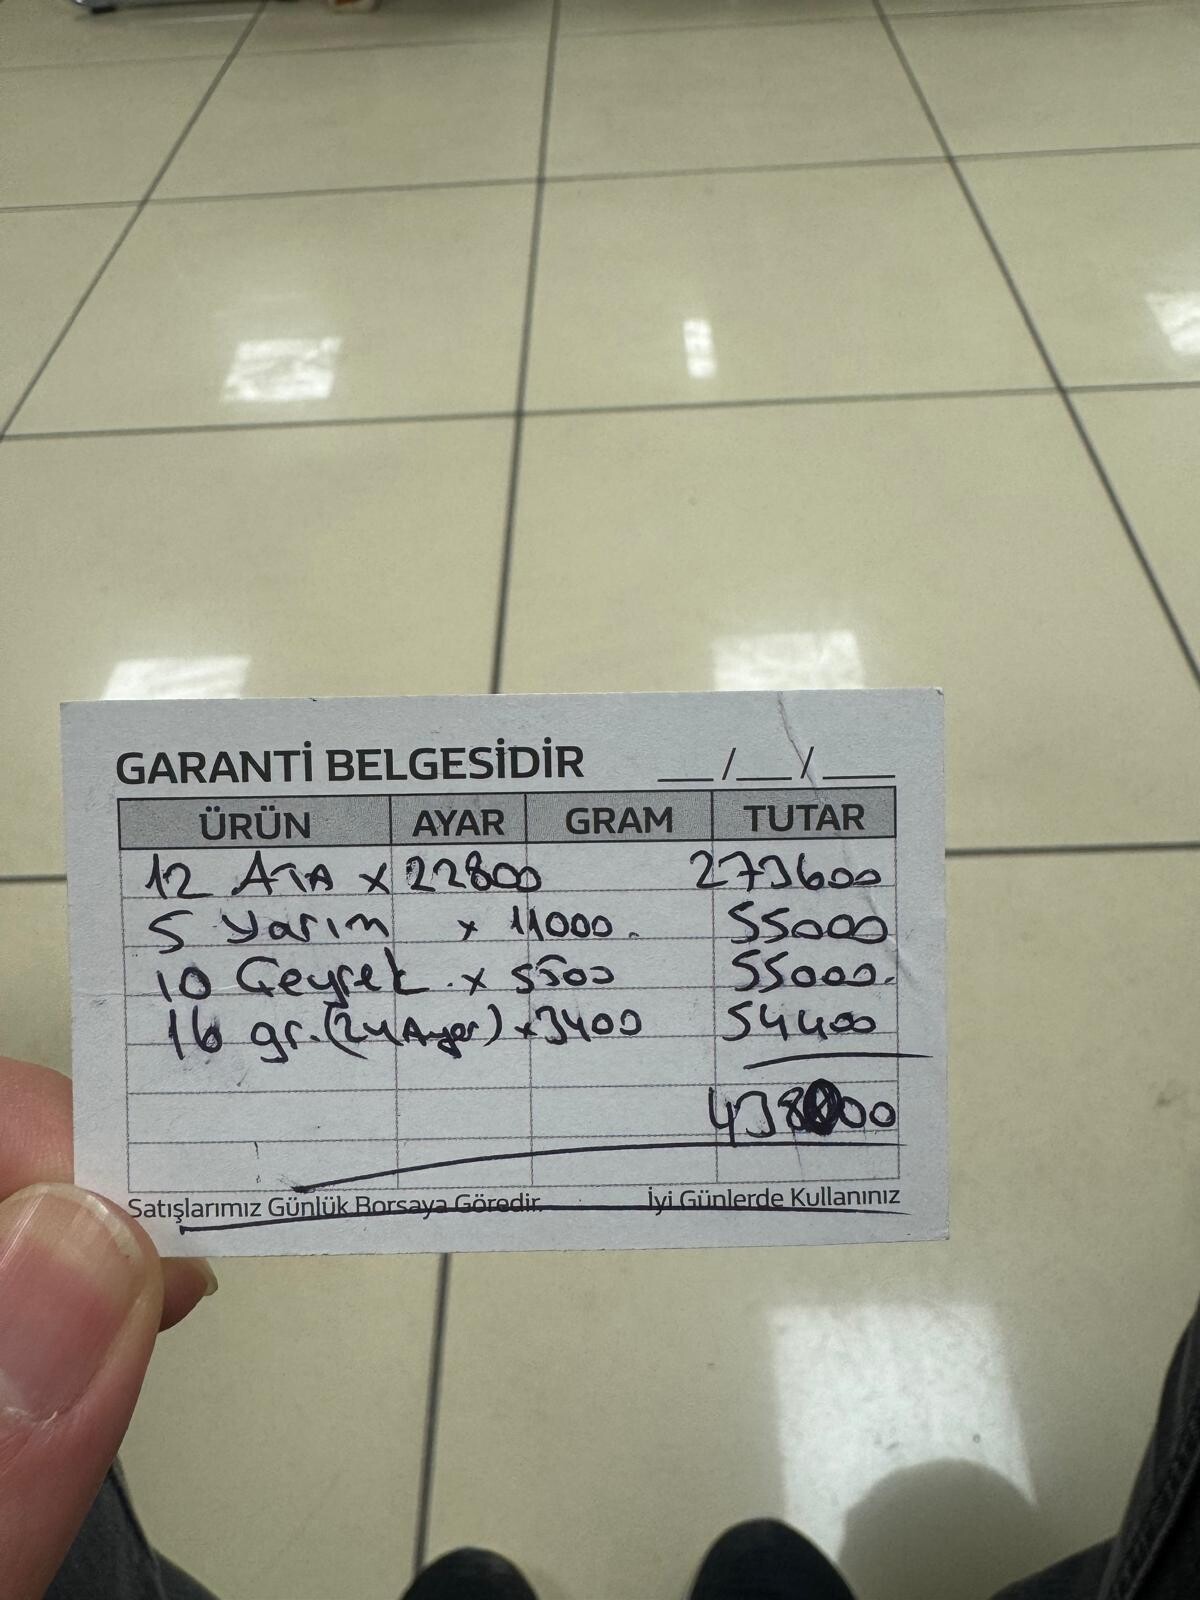 GARANTİ BELGESİDİR __/__/___
ÜRÜN AYAR GRAM TUTAR
12 ATA x 22800 273600
5 Yarım x 11000. 55000
10 Çeyrek. x 5500 55000.
16 gr. (24 Ayar) x3400 54400
438000
Satışlarımız Günlük Borsaya Göredir. İyi Günlerde Kullanınız